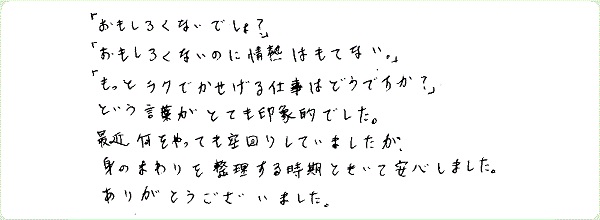 「おもしろくないでしょ？」
「おもしろくないのに情熱はもてない。」
「もっとラクでかせげる仕事はどうですか？」
という言葉がとても印象的でした。
最近何をやっても空回りしていましたが、
身のまわりを整理する時期ときいて安心しました。
ありがとうございました。